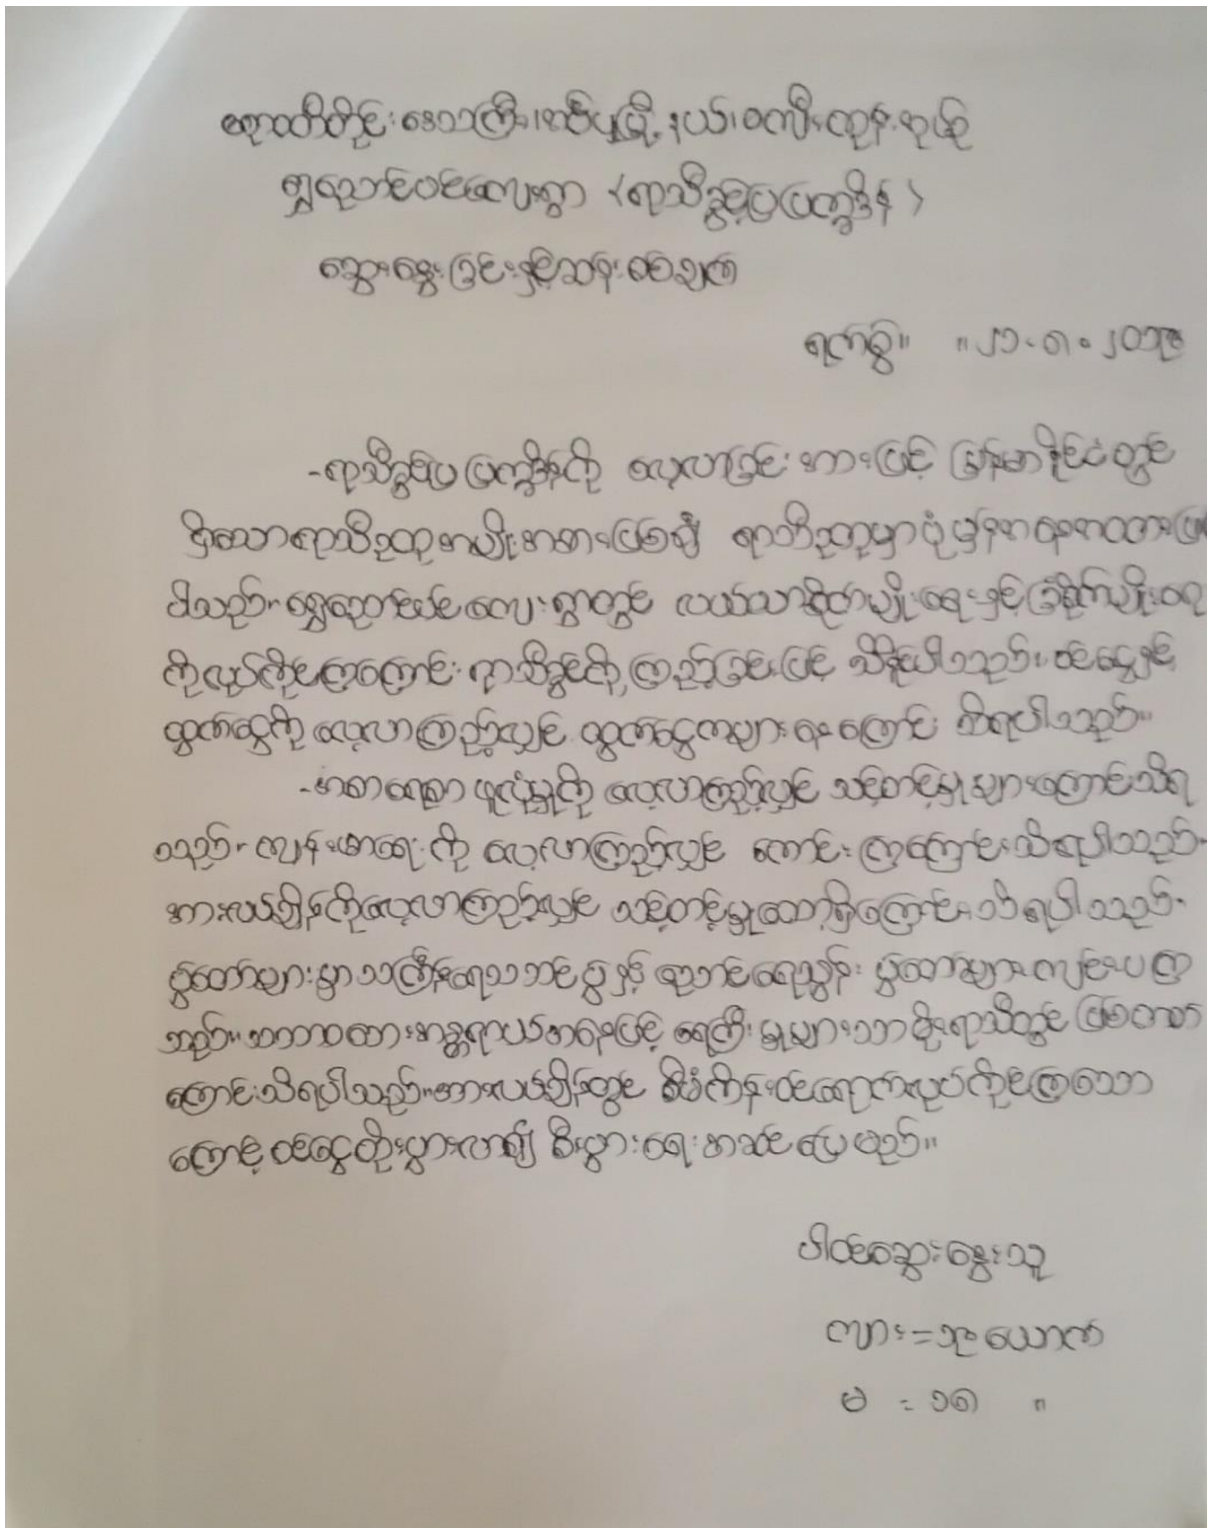 ဧရာဝတီတိုင်းဒေသကြီး၊ အုပ်စု
ရွှေညောင်ပင်လေးရွာ <ရာသီခွင်ပြပြက္ခဒိန်>
ဆွေးနွေးခြင်းနှင့်ဆန်းစစ်ချက်
ရက်စွဲ။ ။၂၁.၈.၂၀၁၉
-ရာသီခွင်ပြပြက္ခဒိန်ကို လေ့လာခြင်းအားဖြင့် မြန်မာနိုင်ငံတွင်
ရှိသောရာသီဥတုအမျိုးအစားဖြစ်၍ ရာသီဥတုမှာပုံမှန်အနေအထားဖြ
ပါသည်။ ရွှေညောင်ပင်လေးရွာတွင် လယ်ယာစိုက်ပျိုးရေးနှင့်ခြံစိုက်ပျိုးရေ
ကိုလုပ်ကိုင်ကြကြောင်း ရာသီခွင်ကိုကြည့်ခြင်းဖြင့် သိနိုင်ပါသည်။ ဝင်ငွေနှင့်
ထွက်ငွေကို လေ့လာကြည့်လျှင် ထွက်ငွေကများနေကြောင်း သိရပါသည်။
-အစာရေစာ ဖူလုံမှုကို လေ့လာကြည့်လျှင် သင့်တင့်မှုများကြောင်းသိရ
သည်။ ကျန်းမာရေးကို လေ့လာကြည့်လျှင် ကောင်းကြကြောင်းသိရပါသည်။
အားလပ်ချိန်ကိုလေ့လာကြည့်လျှင် သင့်တင့်မျှတော့ရှိကြောင်းသိရပါသည်။
ပွဲတော်များမှာ သင်္ကြန်ရေသဘင်ပွဲနှင့် ညောင်ရေသွန်းပွဲတော်များကျင်းပကြ
သည်။ သဘာဝဘေးအန္တရာယ်အနေဖြင့် ရေကြီးမှုများသာ မိုးရာသီတွင် ဖြစ်တတ်
ကြောင်းသိရပါသည်။ အားလပ်ချိန်တွင် စီမံကိန်းဝင်ရောက်လုပ်ကိုင်ကြသော
ကြောင့် ဝင်ငွေတိုးပွားလာ၍ စီးပွားရေးအဆင်ပြေမည်။
ပါဝင်ဆွေးနွေးသူ
ကျား = ယောက်
မ = ၁၈ "